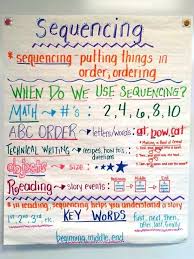 Sequencing
*sequencing-putting things in
order, ordering
WHEN DO WE USE SEQUENCING?
MATH → #'s: 2,4,6,8,10
ABC ORDER → letters/words: at, bow, cat
TECHNICAL WRITING → recipes, how to's, directions
size
Reading → story events:
*in reading, sequencing helps you understand a story
1st, 2nd, 3rd, etc.
KEY WORDS
first, next, then,
after, last, finally
beginning, middle, end